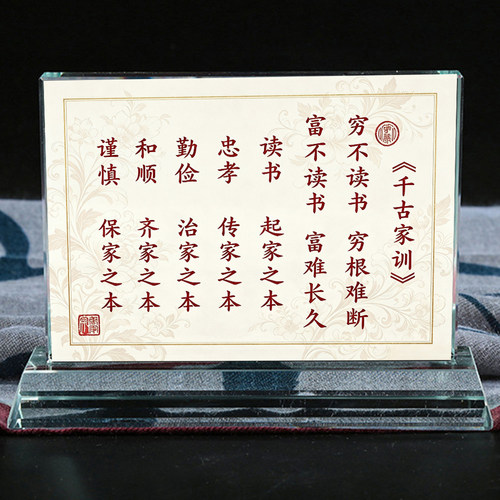 《千古家训》
穷不读书 穷根难断
富不读书 富难长久
读书 起家之本
忠孝 传家之本
勤俭 治家之本
和顺 齐家之本
谨慎 保家之本